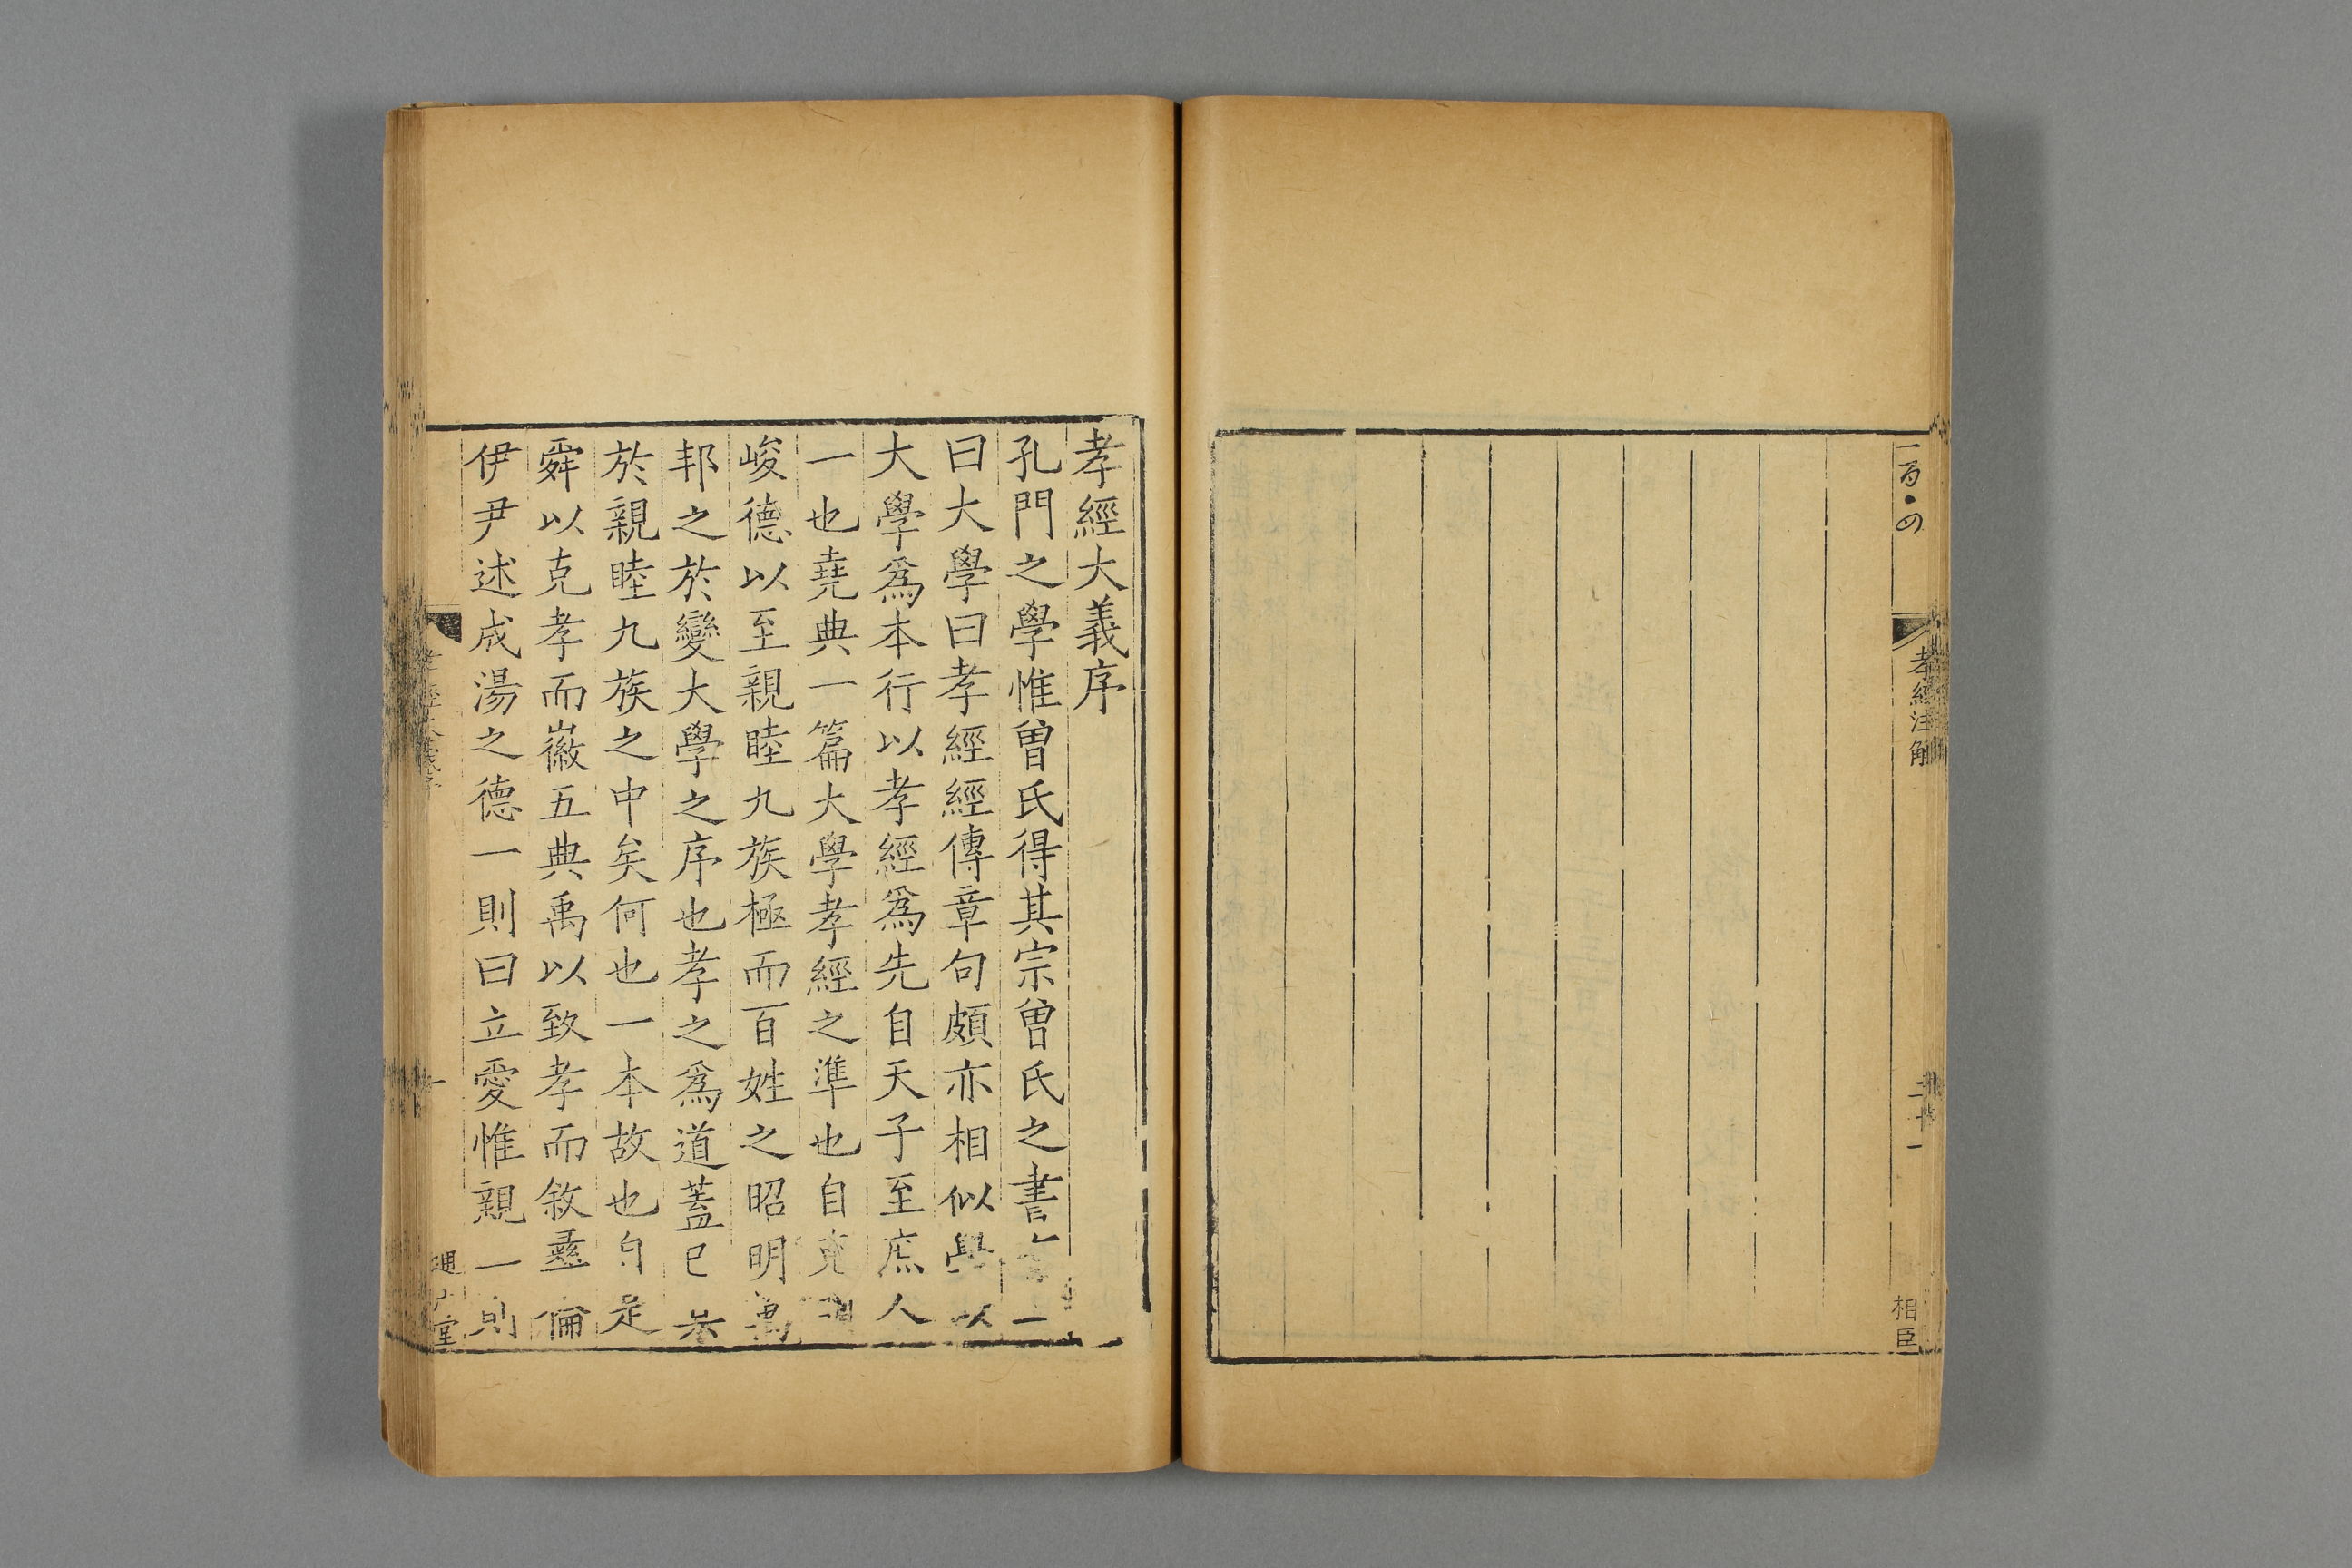 一百四
孝經注解
二十一
相臣
孝經大義序
孔門之學惟曾氏得其宗曾氏之書有二
曰大學曰孝經經傳章句頗亦相似學以
大學爲本行以孝經爲先自天子至庶人
一也堯典一篇大學孝經之準也自克明
峻德以至親睦九族極而百姓之昭明萬
邦之於變大學之序也孝之爲道蓋已具
於親睦九族之中矣何也一本故也自是
舜以克孝而徽五典禹以致孝而敘彝倫
伊尹述成湯之德一則曰立愛惟親一則
孝經大義序
一
通志堂